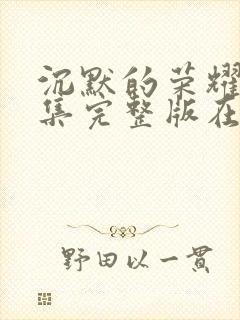 沉默的荣耀
集完整版在
野田以一贯